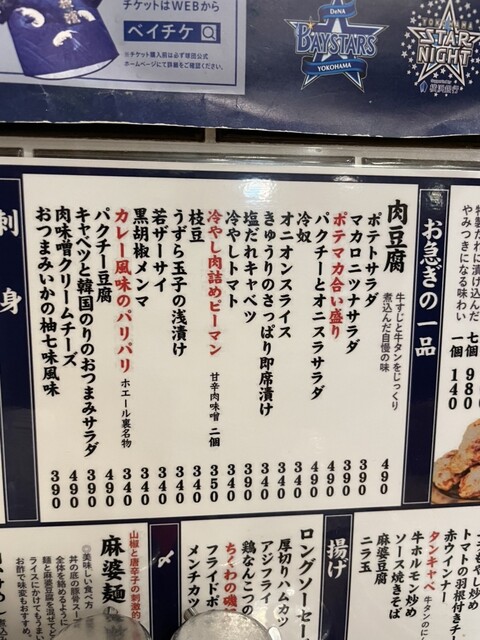 チケットはWEBから
ベイチケ
※チケット購入前は必ず球団公式
ホームページにて詳細をご確認ください。
DeNA
BAYSTARS
YOKOHAMA
YOKOHAMA
STAR
NIGHT
横浜銀行
特製だれに漬け込んだ
やみつきになる味わい
七個 980
一個 140
お急ぎの一品
肉豆腐 牛すじと牛タンをじっくり煮込んだ自慢の味 490
ポテトサラダ 390
マカロニツナサラダ 390
ポテマカ合い盛り 490
パクチーとオニスラサラダ 490
冷奴 340
オニオンスライス 340
きゅうりのさっぱり即席漬け 340
塩だれキャベツ 390
冷やしトマト 340
冷やし肉詰めピーマン 甘辛肉味噌 二個 350
枝豆 340
うずら玉子の浅漬け 340
若ザーサイ 340
黒胡椒メンマ 340
カレー風味のパリパリ ホエール裏名物 340
パクチー豆腐 490
キャベツと韓国のりのおつまみサラダ 390
肉味噌クリームチーズ 490
おつまみいかの柚七味風味 390
刺身
トマトの羽根付きチ
赤ウインナー
タンキャベ 牛タンのに
牛ホルモン炒め
ソース焼きそば
麻婆豆腐
ニラ玉
揚げ
ロングソーセー
厚切りハムカツ
アジフライ
鶏なんこつの
ちくわの磯
フライドポ
メンチカツ
〆
山椒と唐辛子の刺激的
麻婆麺
◎美味しい食べ方
丼の底の豚骨スー
全体を絡めるように
麺と麻婆豆腐を混ぜて
ライスにかけてもうまい
お酢で味変もおすすめ。